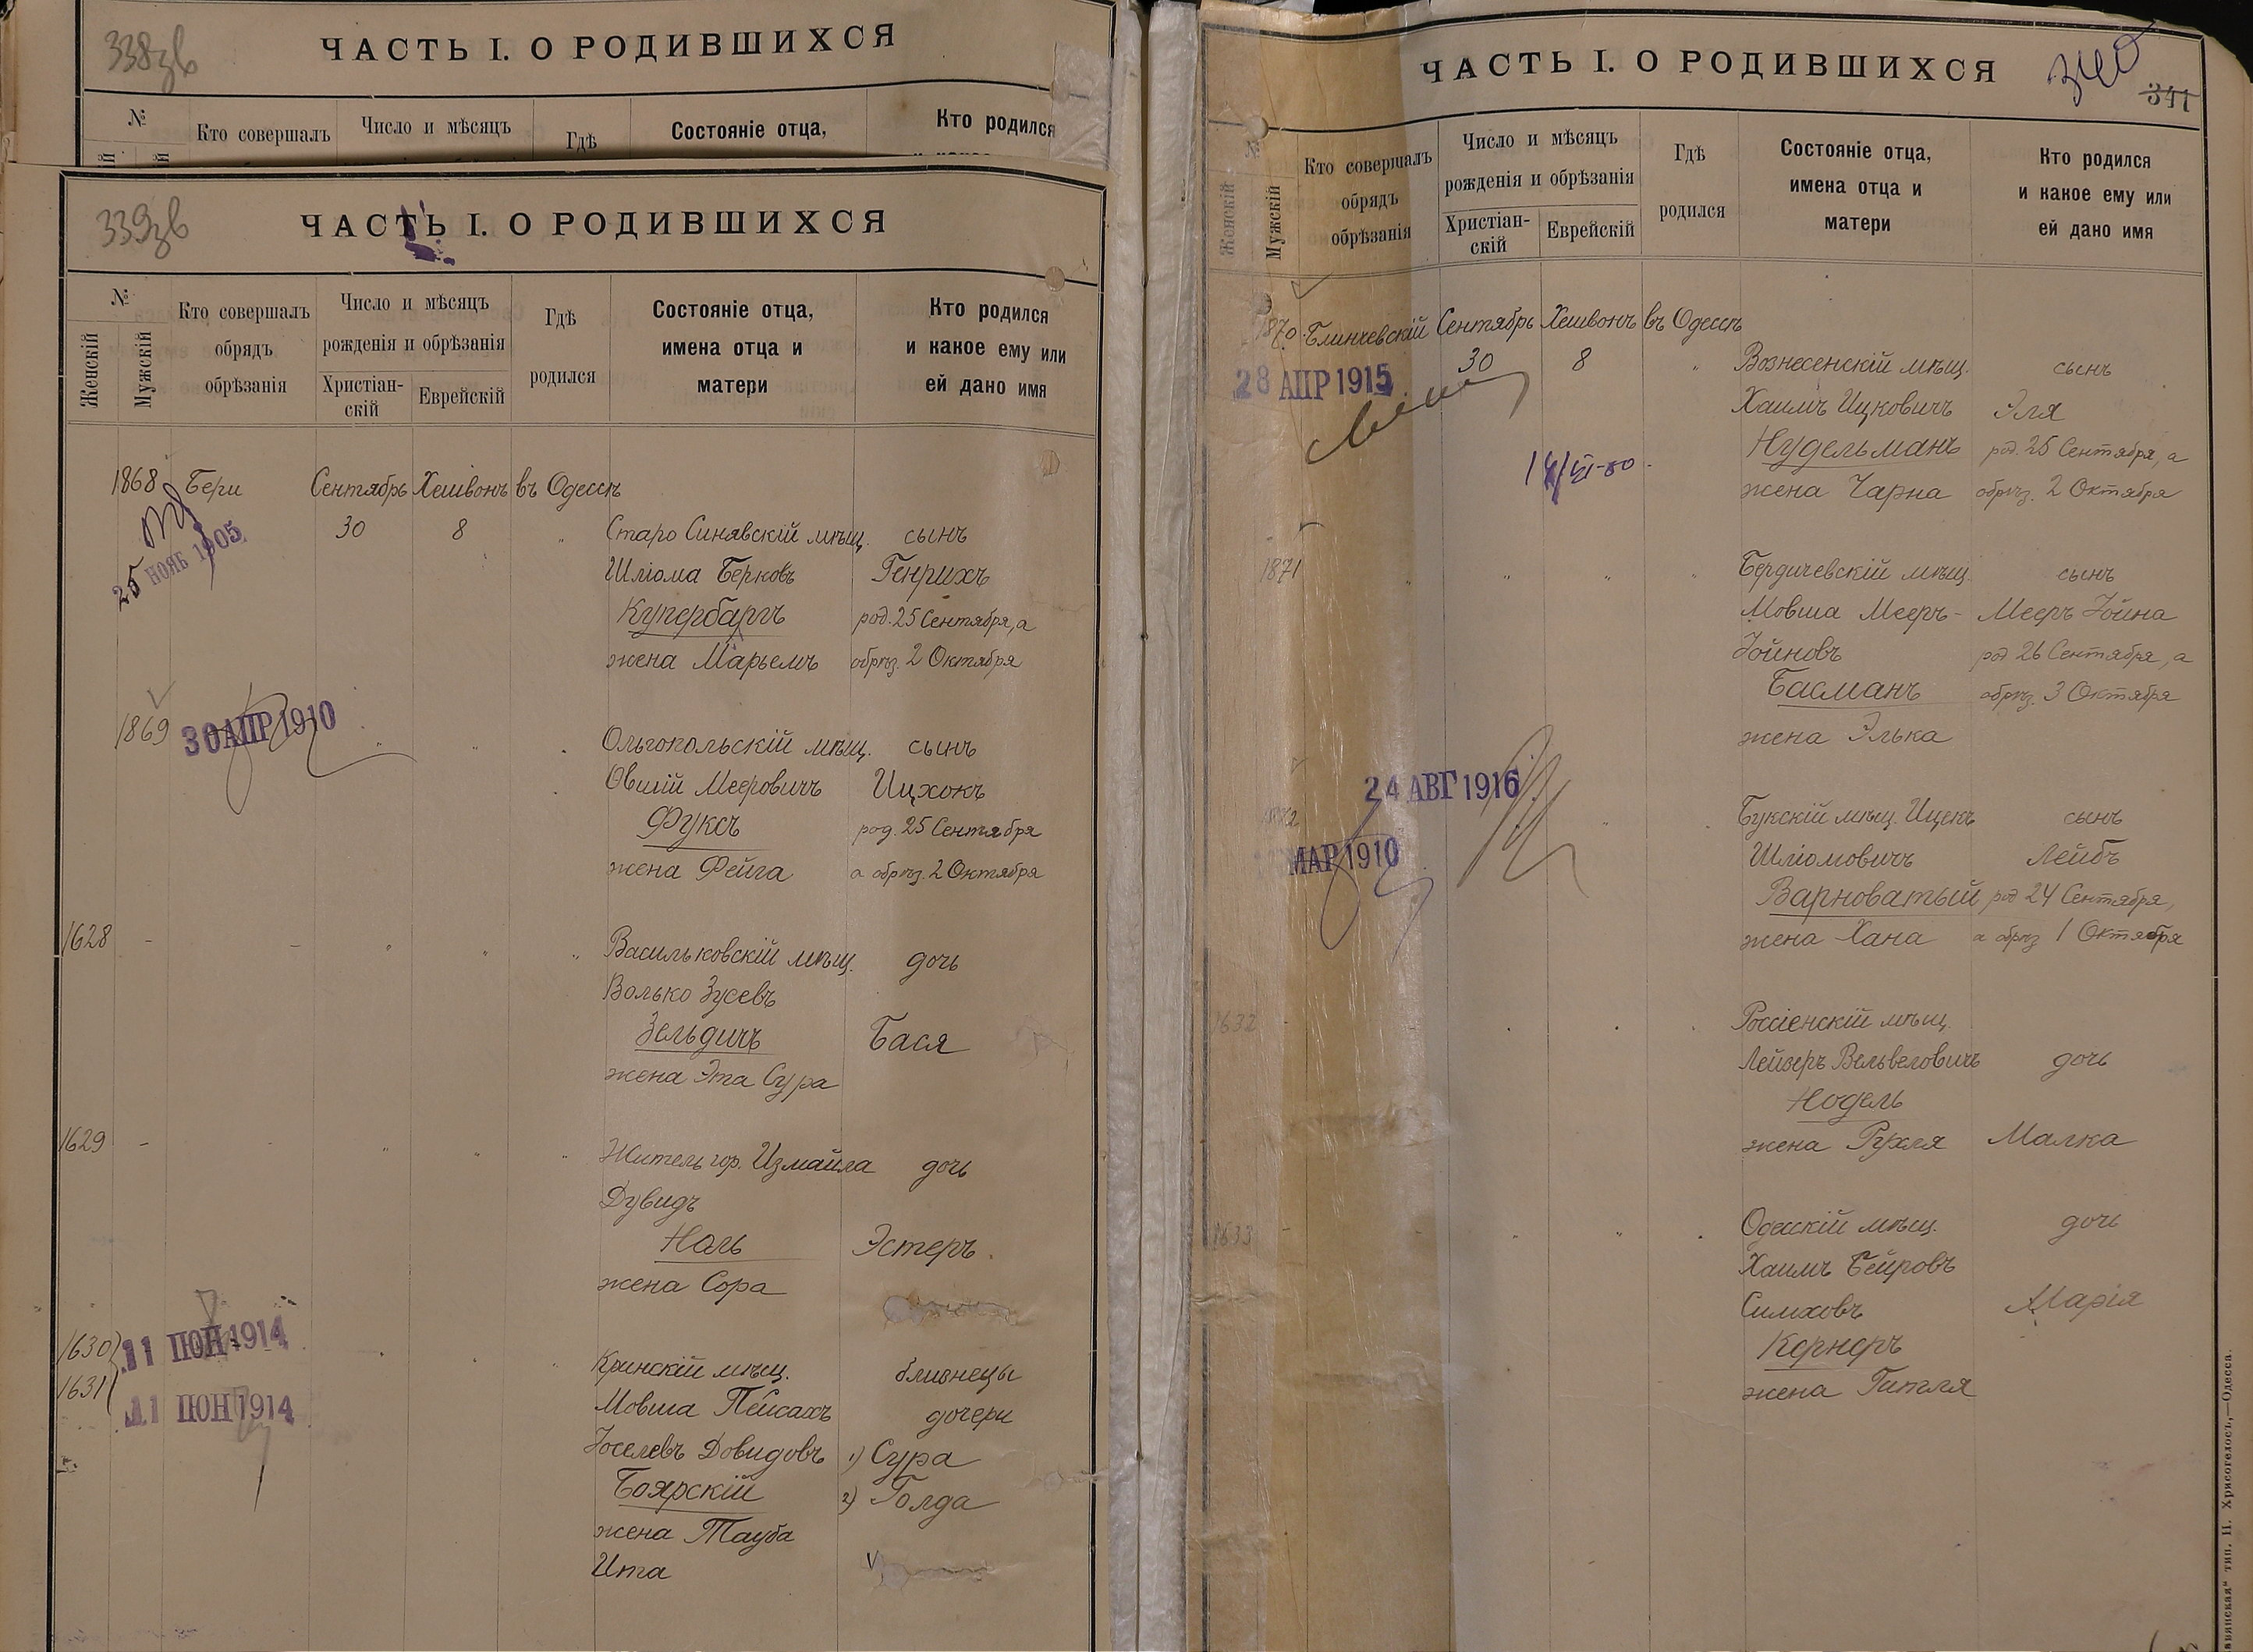 338зв
ЧАСТЬ I. О РОДИВШИХСЯ
№
Кто совершалъ
Число и мѣсяцъ
Гдѣ
Состоянiе отца,
Кто родился
339зв
ЧАСТЬ I. О РОДИВШИХСЯ
№
Женскій
Мужскій
Кто совершалъ
обрядъ
обрѣзанія
Число и мѣсяцъ
рожденія и обрѣзанія
Христіан-
скій
Еврейскій
Гдѣ
родился
Состояніе отца,
имена отца и
матери
Кто родился
и какое ему или
ей дано имя
1868 Бери Сентябрь Хешвонъ въ Одессѣ
30 8 " Старо Синявскій мѣщ. сынъ
25 НОЯБ 1905
Шліома Берковъ Генрихъ
Купербаргъ род. 25 Сентября, а
жена Марьемъ обрѣз. 2 Октября
1869 30 АПР 1910
Ольгопольскій мѣщ. сынъ
Овшій Мееровичъ Ицхокъ
Фуксъ род. 25 Сентября
жена Фейга а обрѣз. 2 Октября
1628 - - " " " Васильковскій мѣщ. дочь
Волько Зусевъ
Зельдичъ Бася
жена Эта Сура
1629 - - " " " Житель гор. Измаила дочь
Дувидъ
Ноль Эстеръ
жена Сора
1630 11 ІЮН 1914
1631 11 ІЮН 1914
Кринскій мѣщ. близнецы
Мовша Пейсахъ дочери
Іоселевъ Довидовъ 1) Сура
Боярскій 2) Голда
жена Тауба
Ита
ЧАСТЬ I. О РОДИВШИХСЯ
340
341
№
Женскій
Мужскій
Кто совершалъ
обрядъ
обрѣзанія
Число и мѣсяцъ
рожденія и обрѣзанія
Христіан-
скій
Еврейскій
Гдѣ
родился
Состояніе отца,
имена отца и
матери
Кто родился
и какое ему или
ей дано имя
1870 Блинчевскій Сентябрь Хешвонъ въ Одессѣ
28 АПР 1915
30 8 " Вознесенскій мѣщ. сынъ
Хаимъ Ицковичъ Эля
Нудельманъ род. 25 Сентября, а
жена Чарна обрѣз. 2 Октября
1871 " " " " Бердичевскій мѣщ. сынъ
Мовша Мееръ- Мееръ Іойна
Іойновъ род 26 Сентября, а
Басманъ обрѣз. 3 Октября
жена Элька
24 АВГ 1916
1872 Букскій мѣщ. Ицекъ сынъ
МАР 1910
Шліомовичъ Лейбъ
Варноватый род 24 Сентября,
жена Хана а обрѣз 1 Октября
1632 Россіенскій мѣщ.
Лейзеръ Вельвеловичъ дочь
Нодель
жена Рухля Малка
1633 - Одесскій мѣщ. дочь
Хаимъ Бейровъ
Симховъ Марія
Кернеръ
жена Гитля
тип. Н. Хрисогелосъ,—Одесса.